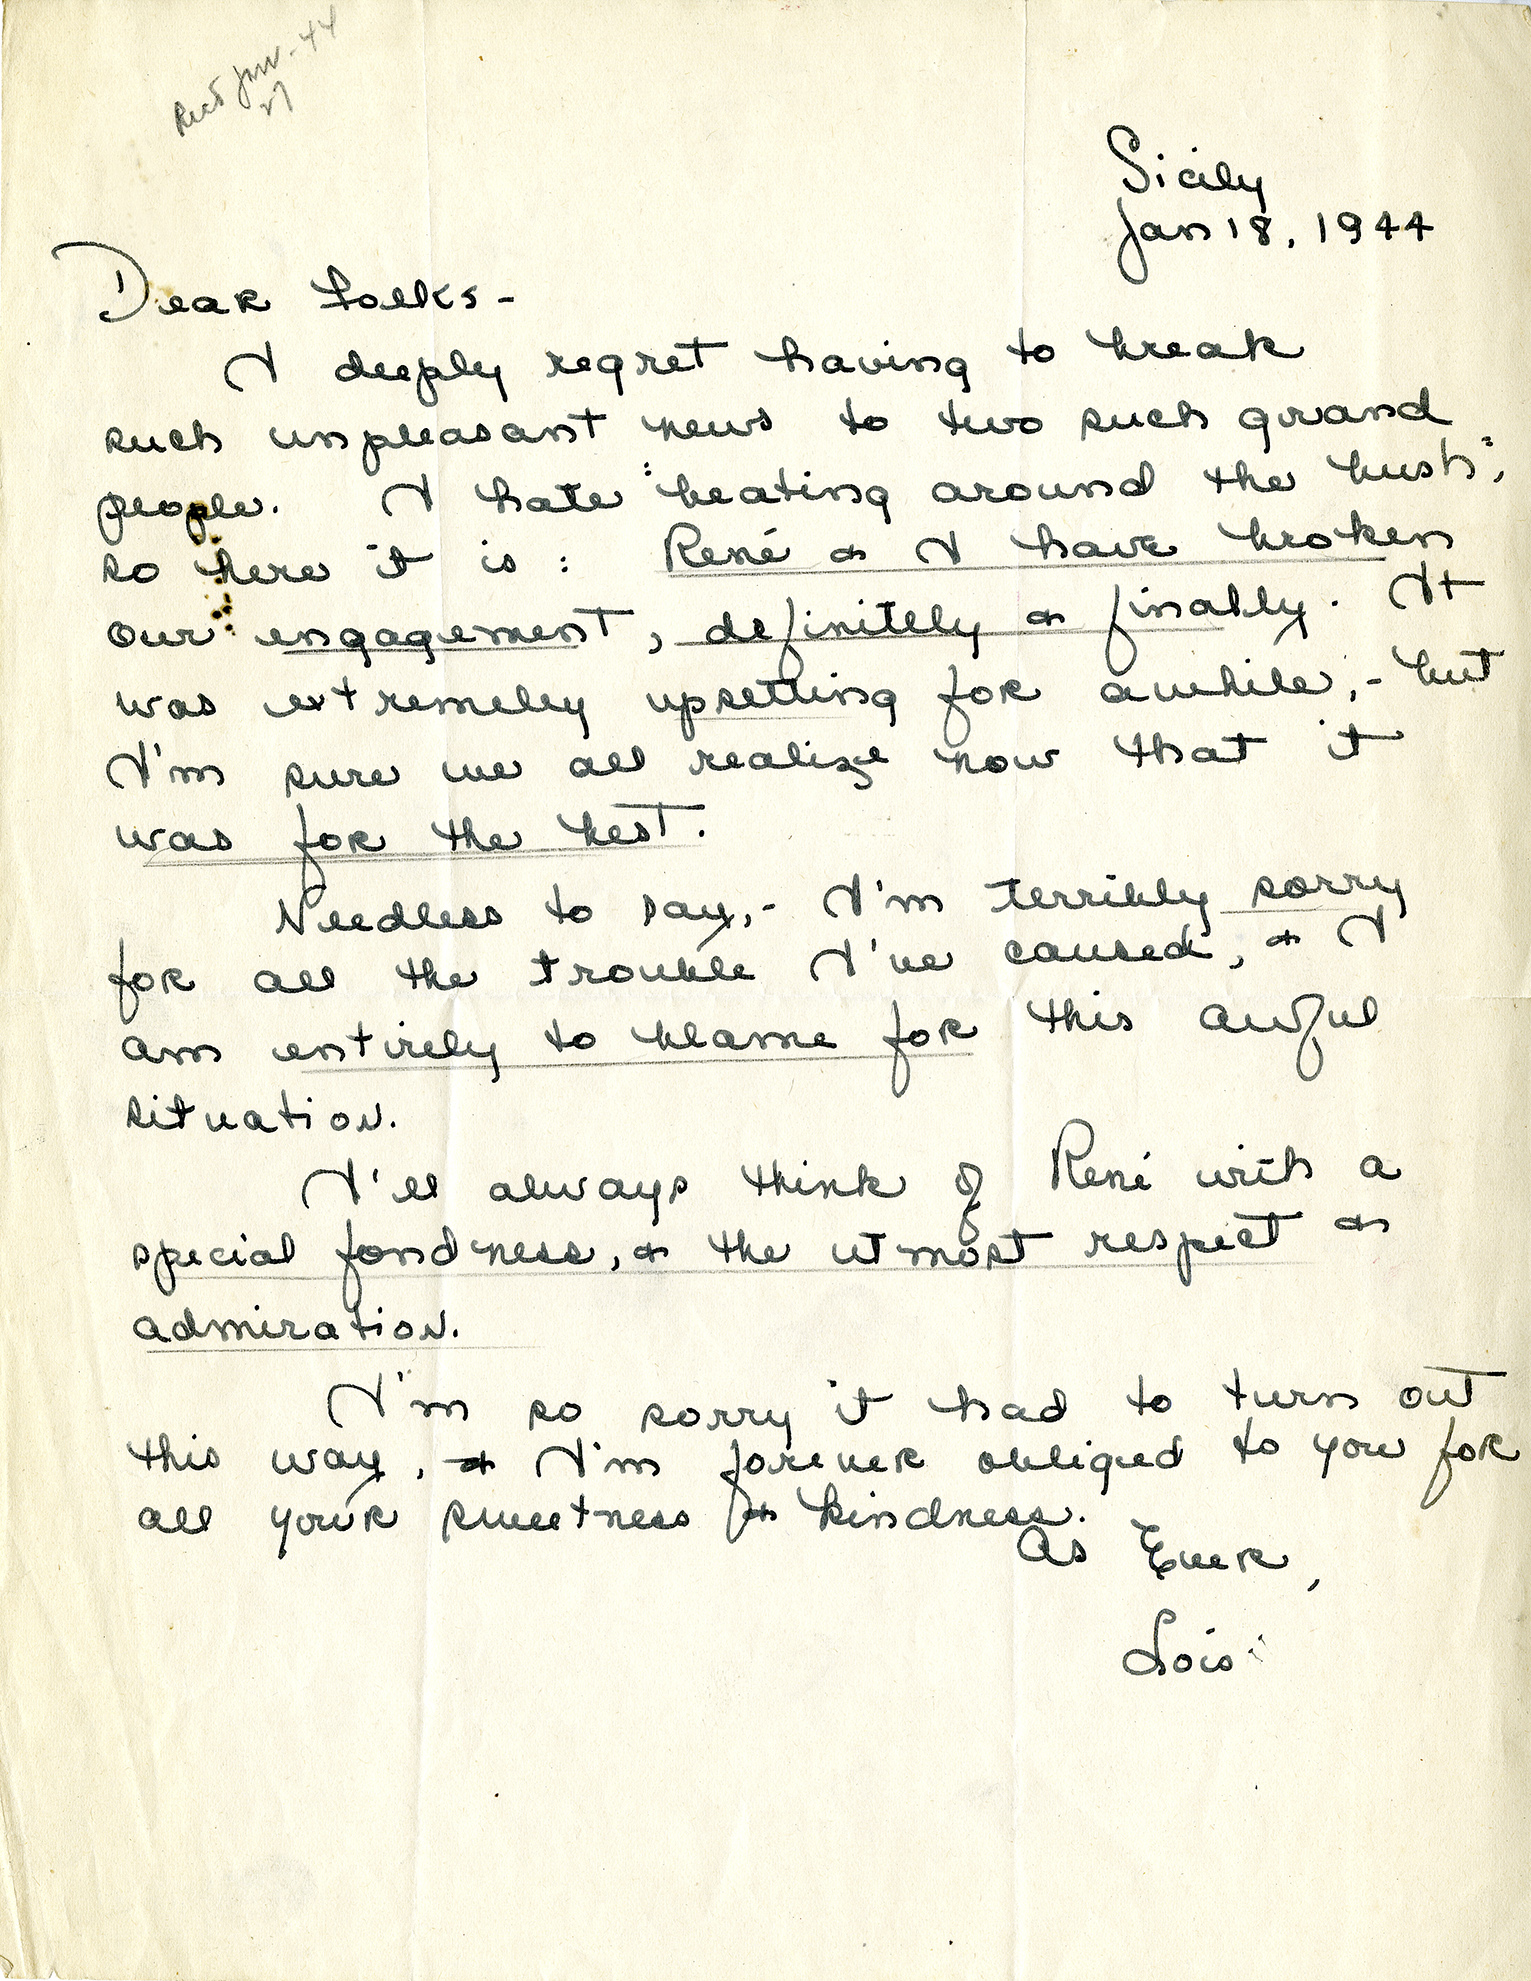 Rec'd Jan - 44
27
Sicily
Jan 18, 1944
Dear folks -
I deeply regret having to break
such unpleasant news to two such grand
people. I hate "beating around the bush",
so here it is : René & I have broken
our engagement, definitely & finally. It
was extremeley upsetting for awhile, - but
I'm sure we all realize now that it
was for the best.
Needless to say, - I'm terribly sorry
for all the trouble I've caused, & I
am entirely to blame for this awful
situation.
I'll always think of René with a
special fondness, & the utmost respect &
admiration.
I'm so sorry it had to turn out
this way, & I'm forever obliged to you for
all your sweetness & kindness.
As Ever,
Lois